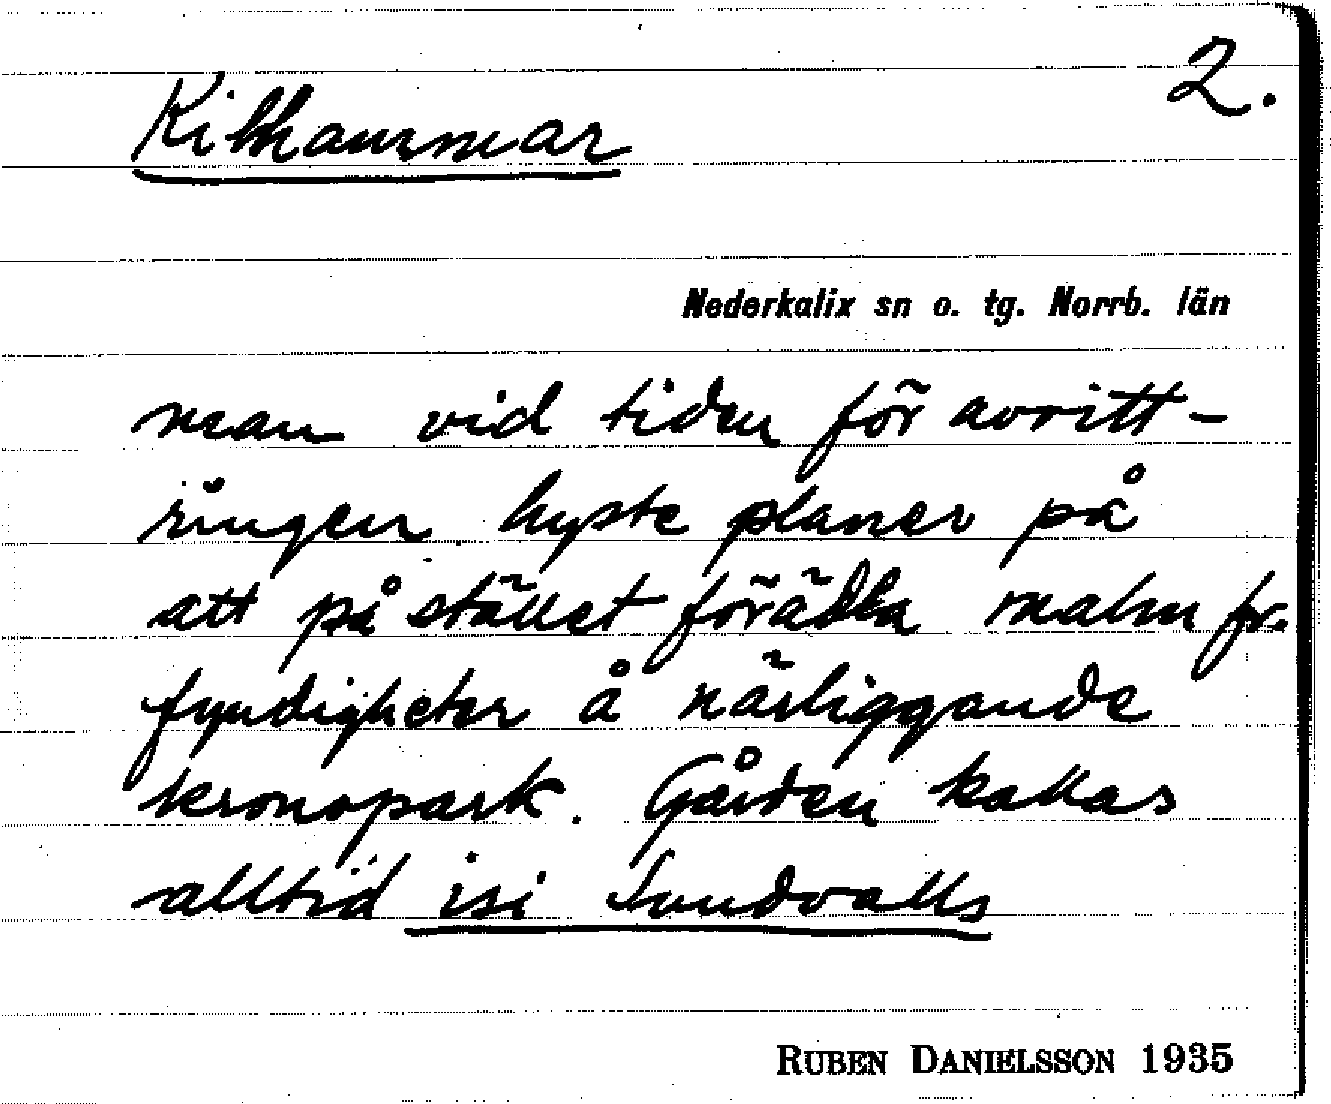 2.
Kilhammar
Nederkalix sn o. tg. Norrb. län
man vid tiden för avvitt-
ringen hyste planer på
att på stället förädla malm fr.
fyndigheter å närliggande
kronopark. Gården kallas
alltid isi Sundvalls
RUBEN DANIELSSON 1935